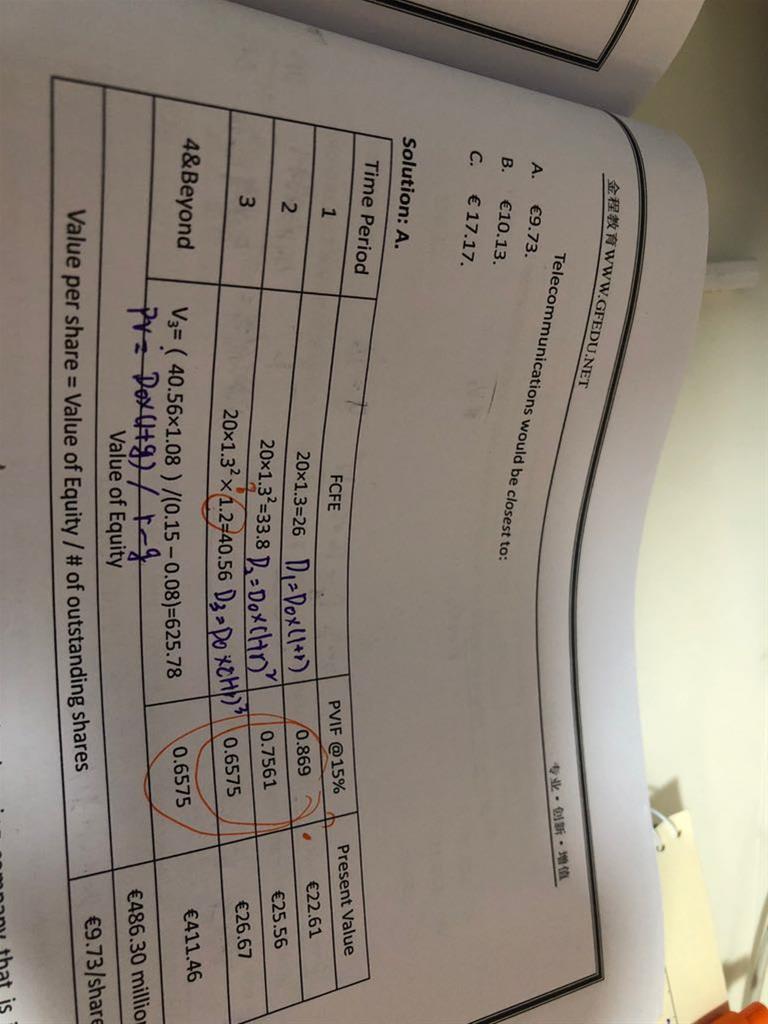 金程教育 WWW.GFEDU.NET 专业·创新·增值
Telecommunications would be closest to:
A. €9.73.
B. €10.13.
C. € 17.17.
Solution: A.
Time Period FCFE PVIF @15% Present Value
1 20×1.3=26 D₁=D₀×(1+r) 0.869 €22.61
2 20×1.3²=33.8 D₂=D₀×(1+r)² 0.7561 €25.56
3 20×1.3²×1.2=40.56 D₃=D₀×(1+r)³ 0.6575 €26.67
4&Beyond V₃= ( 40.56×1.08 ) /(0.15 – 0.08)=625.78 0.6575 €411.46
PV= D₀×(1+g) / r-g
Value of Equity €486.30 million
Value per share = Value of Equity / # of outstanding shares €9.73/share
company that is